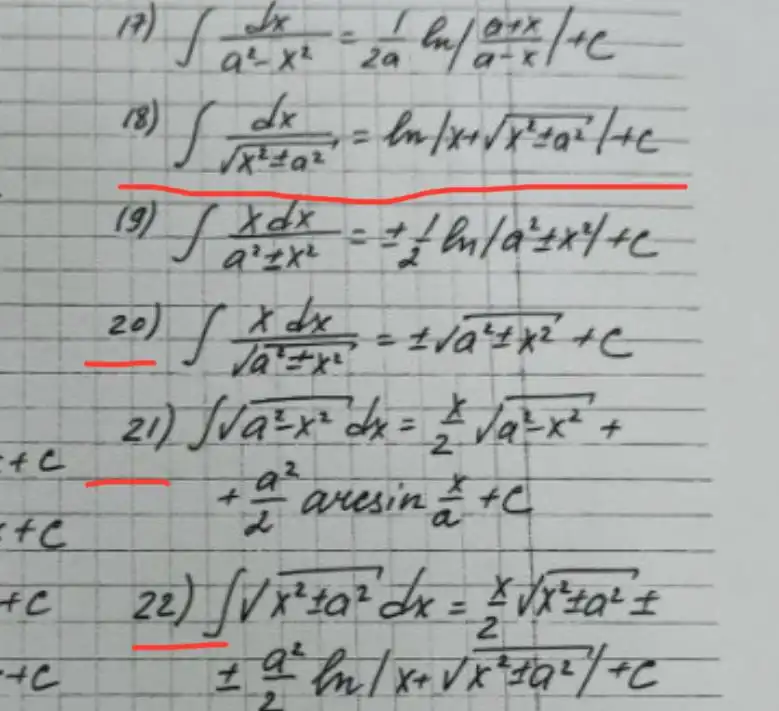 17) ∫ dx / (a² - x²) = 1/(2a) ln|(a+x)/(a-x)| + C
18) ∫ dx / √(x² ± a²) = ln|x + √(x² ± a²)| + C
19) ∫ x dx / (a² ± x²) = ± 1/2 ln|a² ± x²| + C
20) ∫ x dx / √(a² ± x²) = ± √(a² ± x²) + C
21) ∫ √(a² - x²) dx = x/2 √(a² - x²) +
+ C
+ a²/2 arcsin x/a + C
+ C
22) ∫ √(x² ± a²) dx = x/2 √(x² ± a²) ±
+ C
± a²/2 ln|x + √(x² ± a²)| + C
+ C